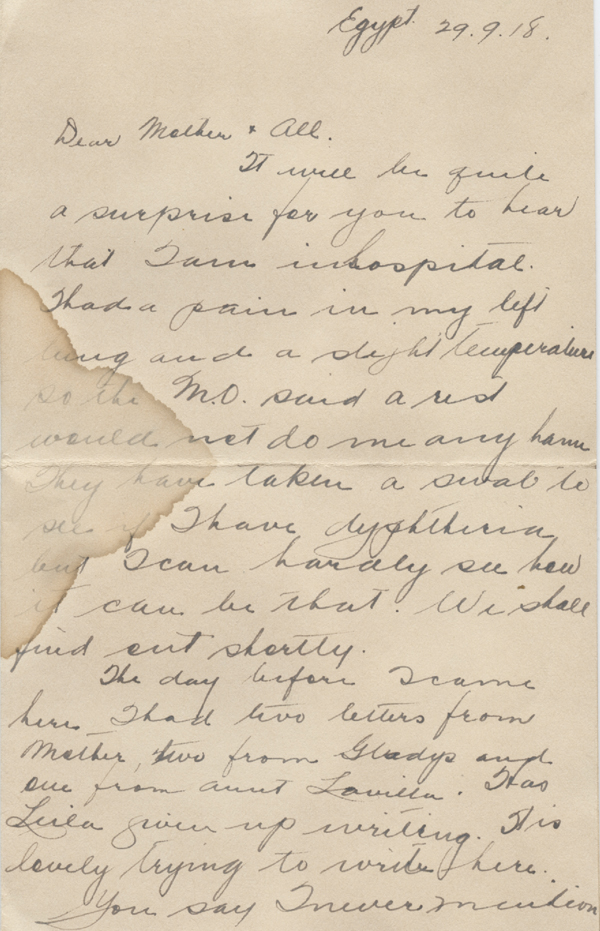 Egypt. 29.9.18.
Dear Mother & All.
It will be quite
a surprise for you to hear
that I am in hospital.
I had a pain in my left
lung and a slight temperature
so the M.O. said a rest
would not do me any harm
They have taken a swab to
see if I have dyphtheria
but I can hardly see how
it can be that. We shall
find out shortly.
The day before I came
here I had two letters from
Mother, two from Gladys and
one from aunt Lavilla. Has
Leila given up writing. It is
lovely trying to write here.
You say I never mention